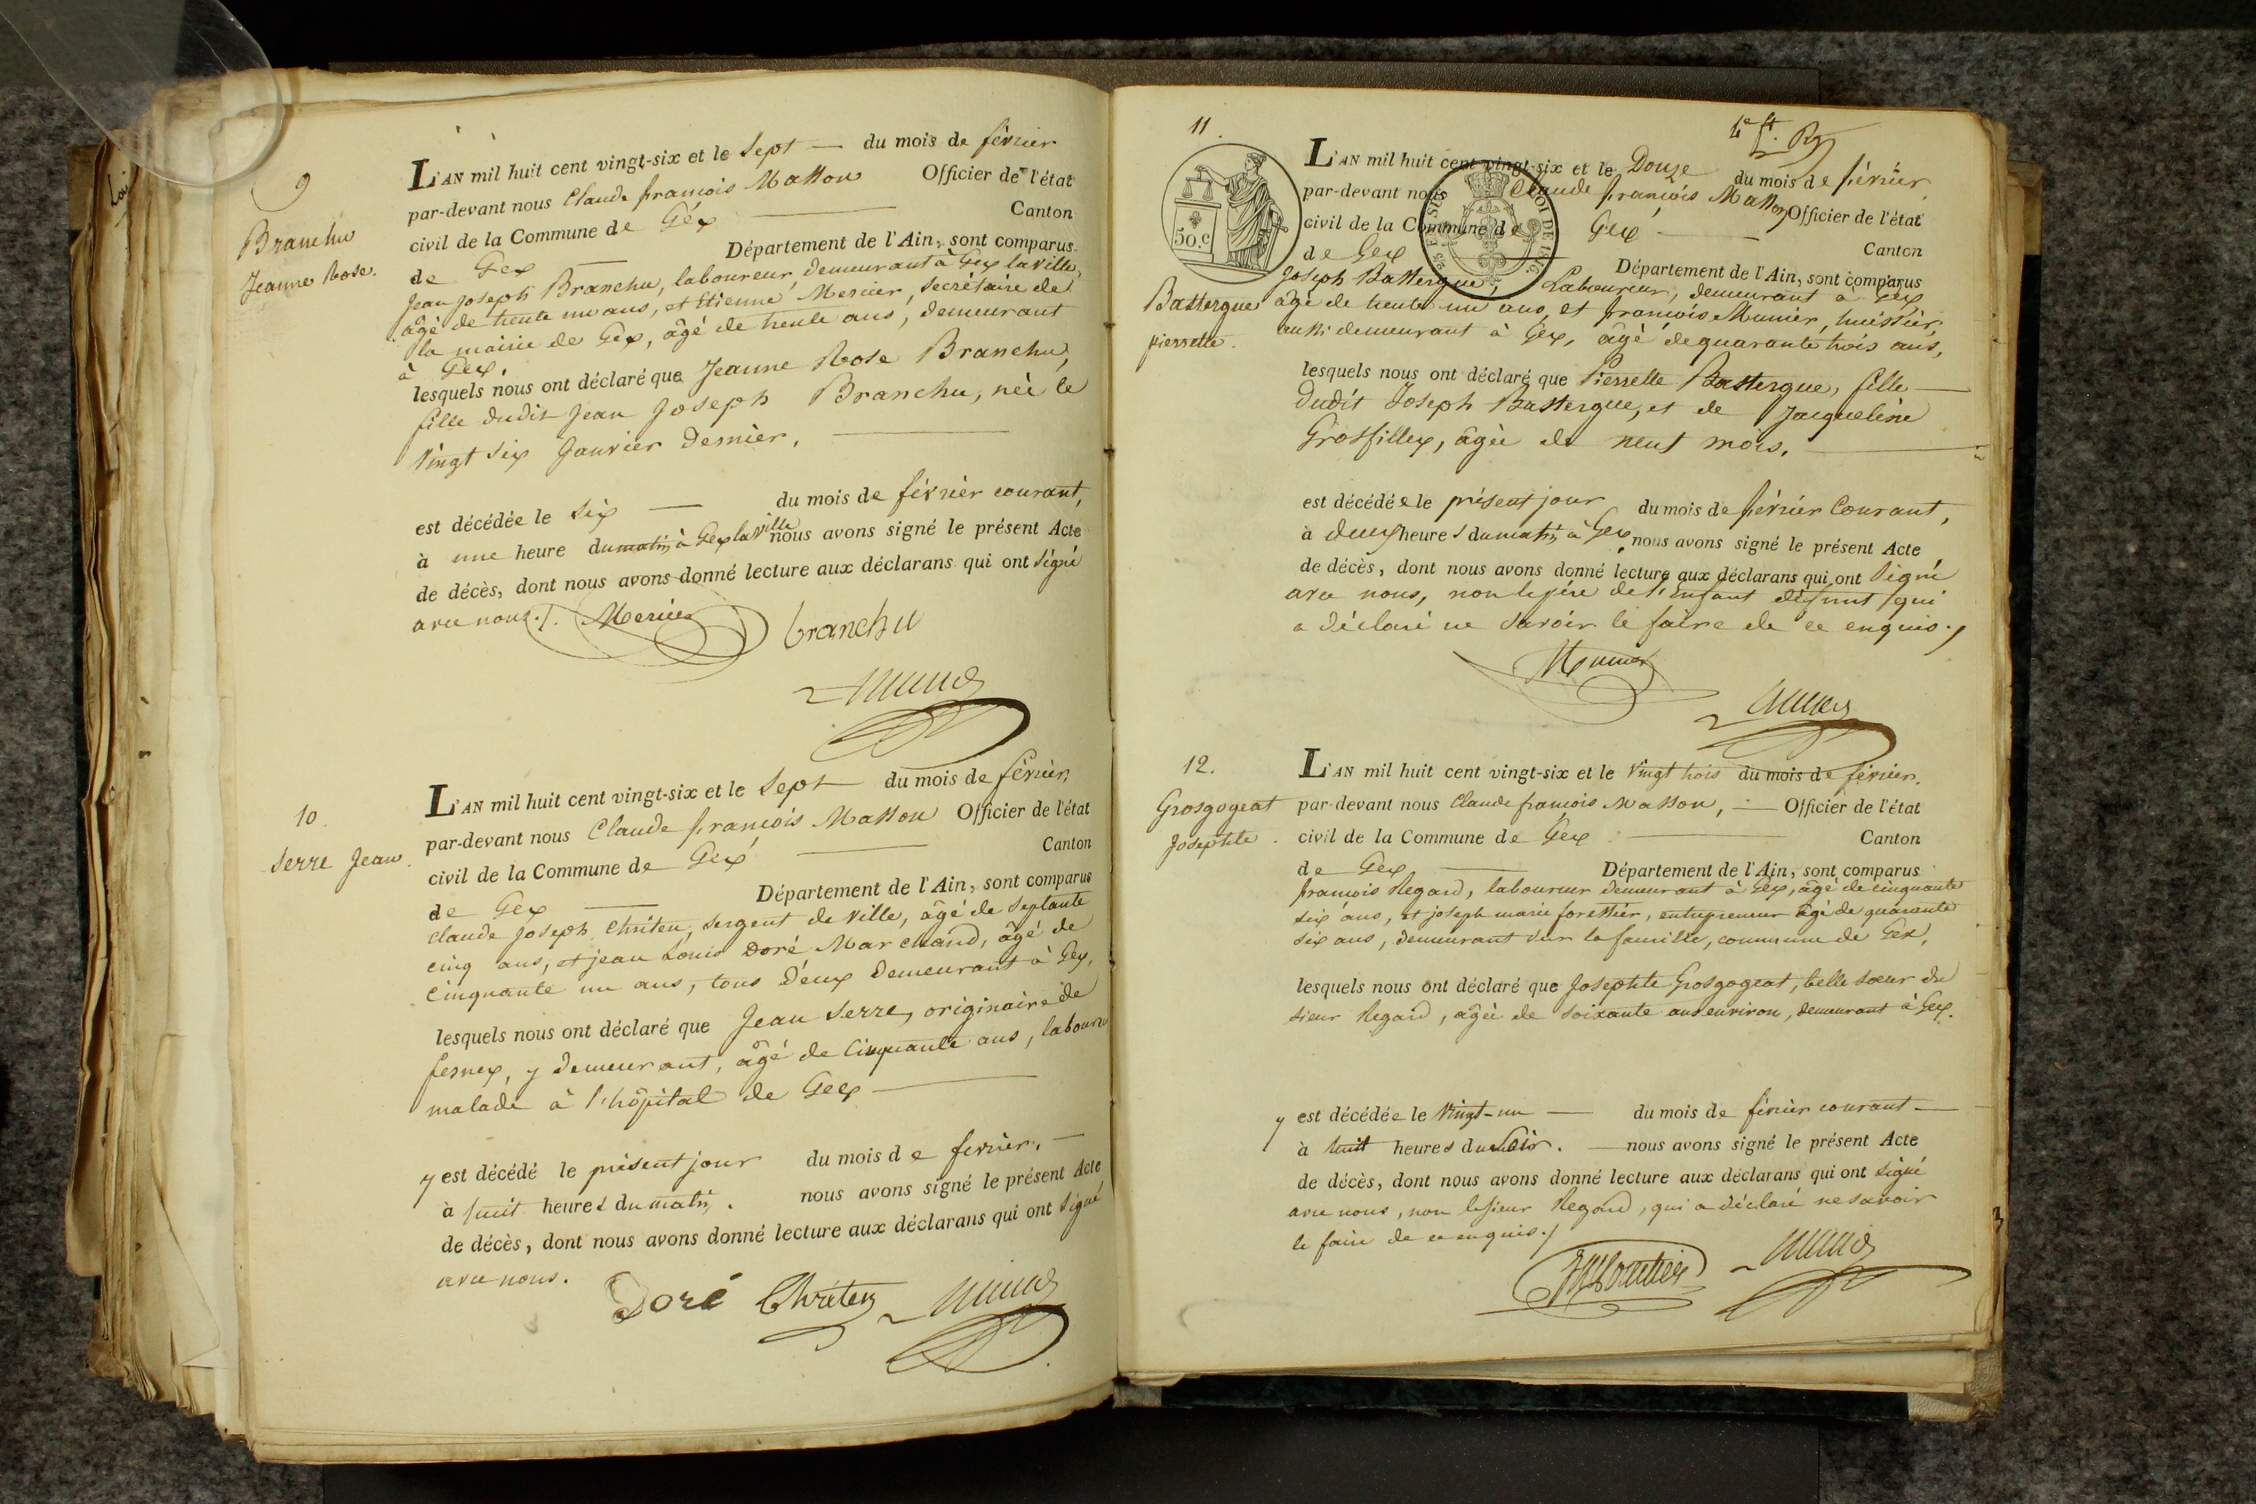 9
Branchu
Jeanne Rose.
L'AN mil huit cent vingt-six et le Sept — du mois de février
par-devant nous Claude françois Masson Officier de l'état
civil de la Commune de Gex — Canton
de Gex — Département de l'Ain, sont comparus
Jean Joseph Branchu, laboureur, demeurant à Gex la ville,
âgé de trente un ans, et Etienne Mercier, Secrétaire de
la mairie de Gex, âgé de trente ans, demeurant
à Gex,
lesquels nous ont déclaré que Jeanne Rose Branchu,
fille dudit Jean Joseph Branchu, née le
vingt six Janvier dernier, —
est décédée le Six — du mois de février courant,
à une heure du matin, à Gex la ville nous avons signé le présent Acte
de décès, dont nous avons donné lecture aux déclarans qui ont signé
avec nous./. Mercier branchu
10.
Serre Jean.
L'AN mil huit cent vingt-six et le Sept — du mois de février,
par-devant nous Claude françois Masson Officier de l'état
civil de la Commune de Gex — Canton
de Gex — Département de l'Ain, sont comparus
claude Joseph Chrêten, sergent de ville, âgé de septante
cinq ans, et jean Louis Doré Marchand, âgé de
cinquante un ans, tous deux demeurant à Gex,
lesquels nous ont déclaré que Jean Serre, originaire de
fernex, y demeurant, âgé de Cinquante ans, laboureur
malade à l'hôpital de Gex —
y est décédé le présent jour du mois de fevrier, —
à huit heures du matin. nous avons signé le présent Acte
de décès, dont nous avons donné lecture aux déclarans qui ont signé
avec nous.
Doré Chrêten
11.
50.c
Bastergue
pierrette.
L'AN mil huit cent vingt-six et le Douze du mois de février
par-devant nous Claude françois Masson Officier de l'état
civil de la Commune de Gex — Canton
de Gex — Département de l'Ain, sont comparus
Joseph Bastergue, Laboureur, demeurant à Gex
âgé de trente un ans, et françois Munier, huissier,
aussi demeurant à Gex, âgé de quarante trois ans,
lesquels nous ont déclaré que Pierrette Bastergue, fille —
Dudit Joseph Bastergue, et de Jacqueline
Grosfillex, âgée de neuf mois. —
est décédée le présent jour du mois de février Courant,
à deux heures du matin à Gex nous avons signé le présent Acte
de décès, dont nous avons donné lecture aux déclarans qui ont signé
avec nous, non le père de l'enfant défunt qui
a déclaré ne savoir le faire de ce enquis./
Munier
12.
Grosgogeat
Josephte.
L'AN mil huit cent vingt-six et le vingt trois du mois de février.
par-devant nous Claude françois Masson, — Officier de l'état
civil de la Commune de Gex — Canton
de Gex — Département de l'Ain, sont comparus
françois Regard, laboureur demeurant à Gex, âgé de cinquante
six ans, et joseph marie forestier, entrepreneur âgé de quarante
six ans, demeurant sur la faucille, commune de Gex,
lesquels nous ont déclaré que Josephte Grosgogeat, belle sœur du
sieur Regard, âgée de soixante ans environ, demeurant à Gex.
y est décédée le Vingt-un — du mois de février courant —
à huit heures du soir. — nous avons signé le présent Acte
de décès, dont nous avons donné lecture aux déclarans qui ont signé
avec nous, non le sieur Regard, qui a déclaré ne savoir
le faire de ce enquis./